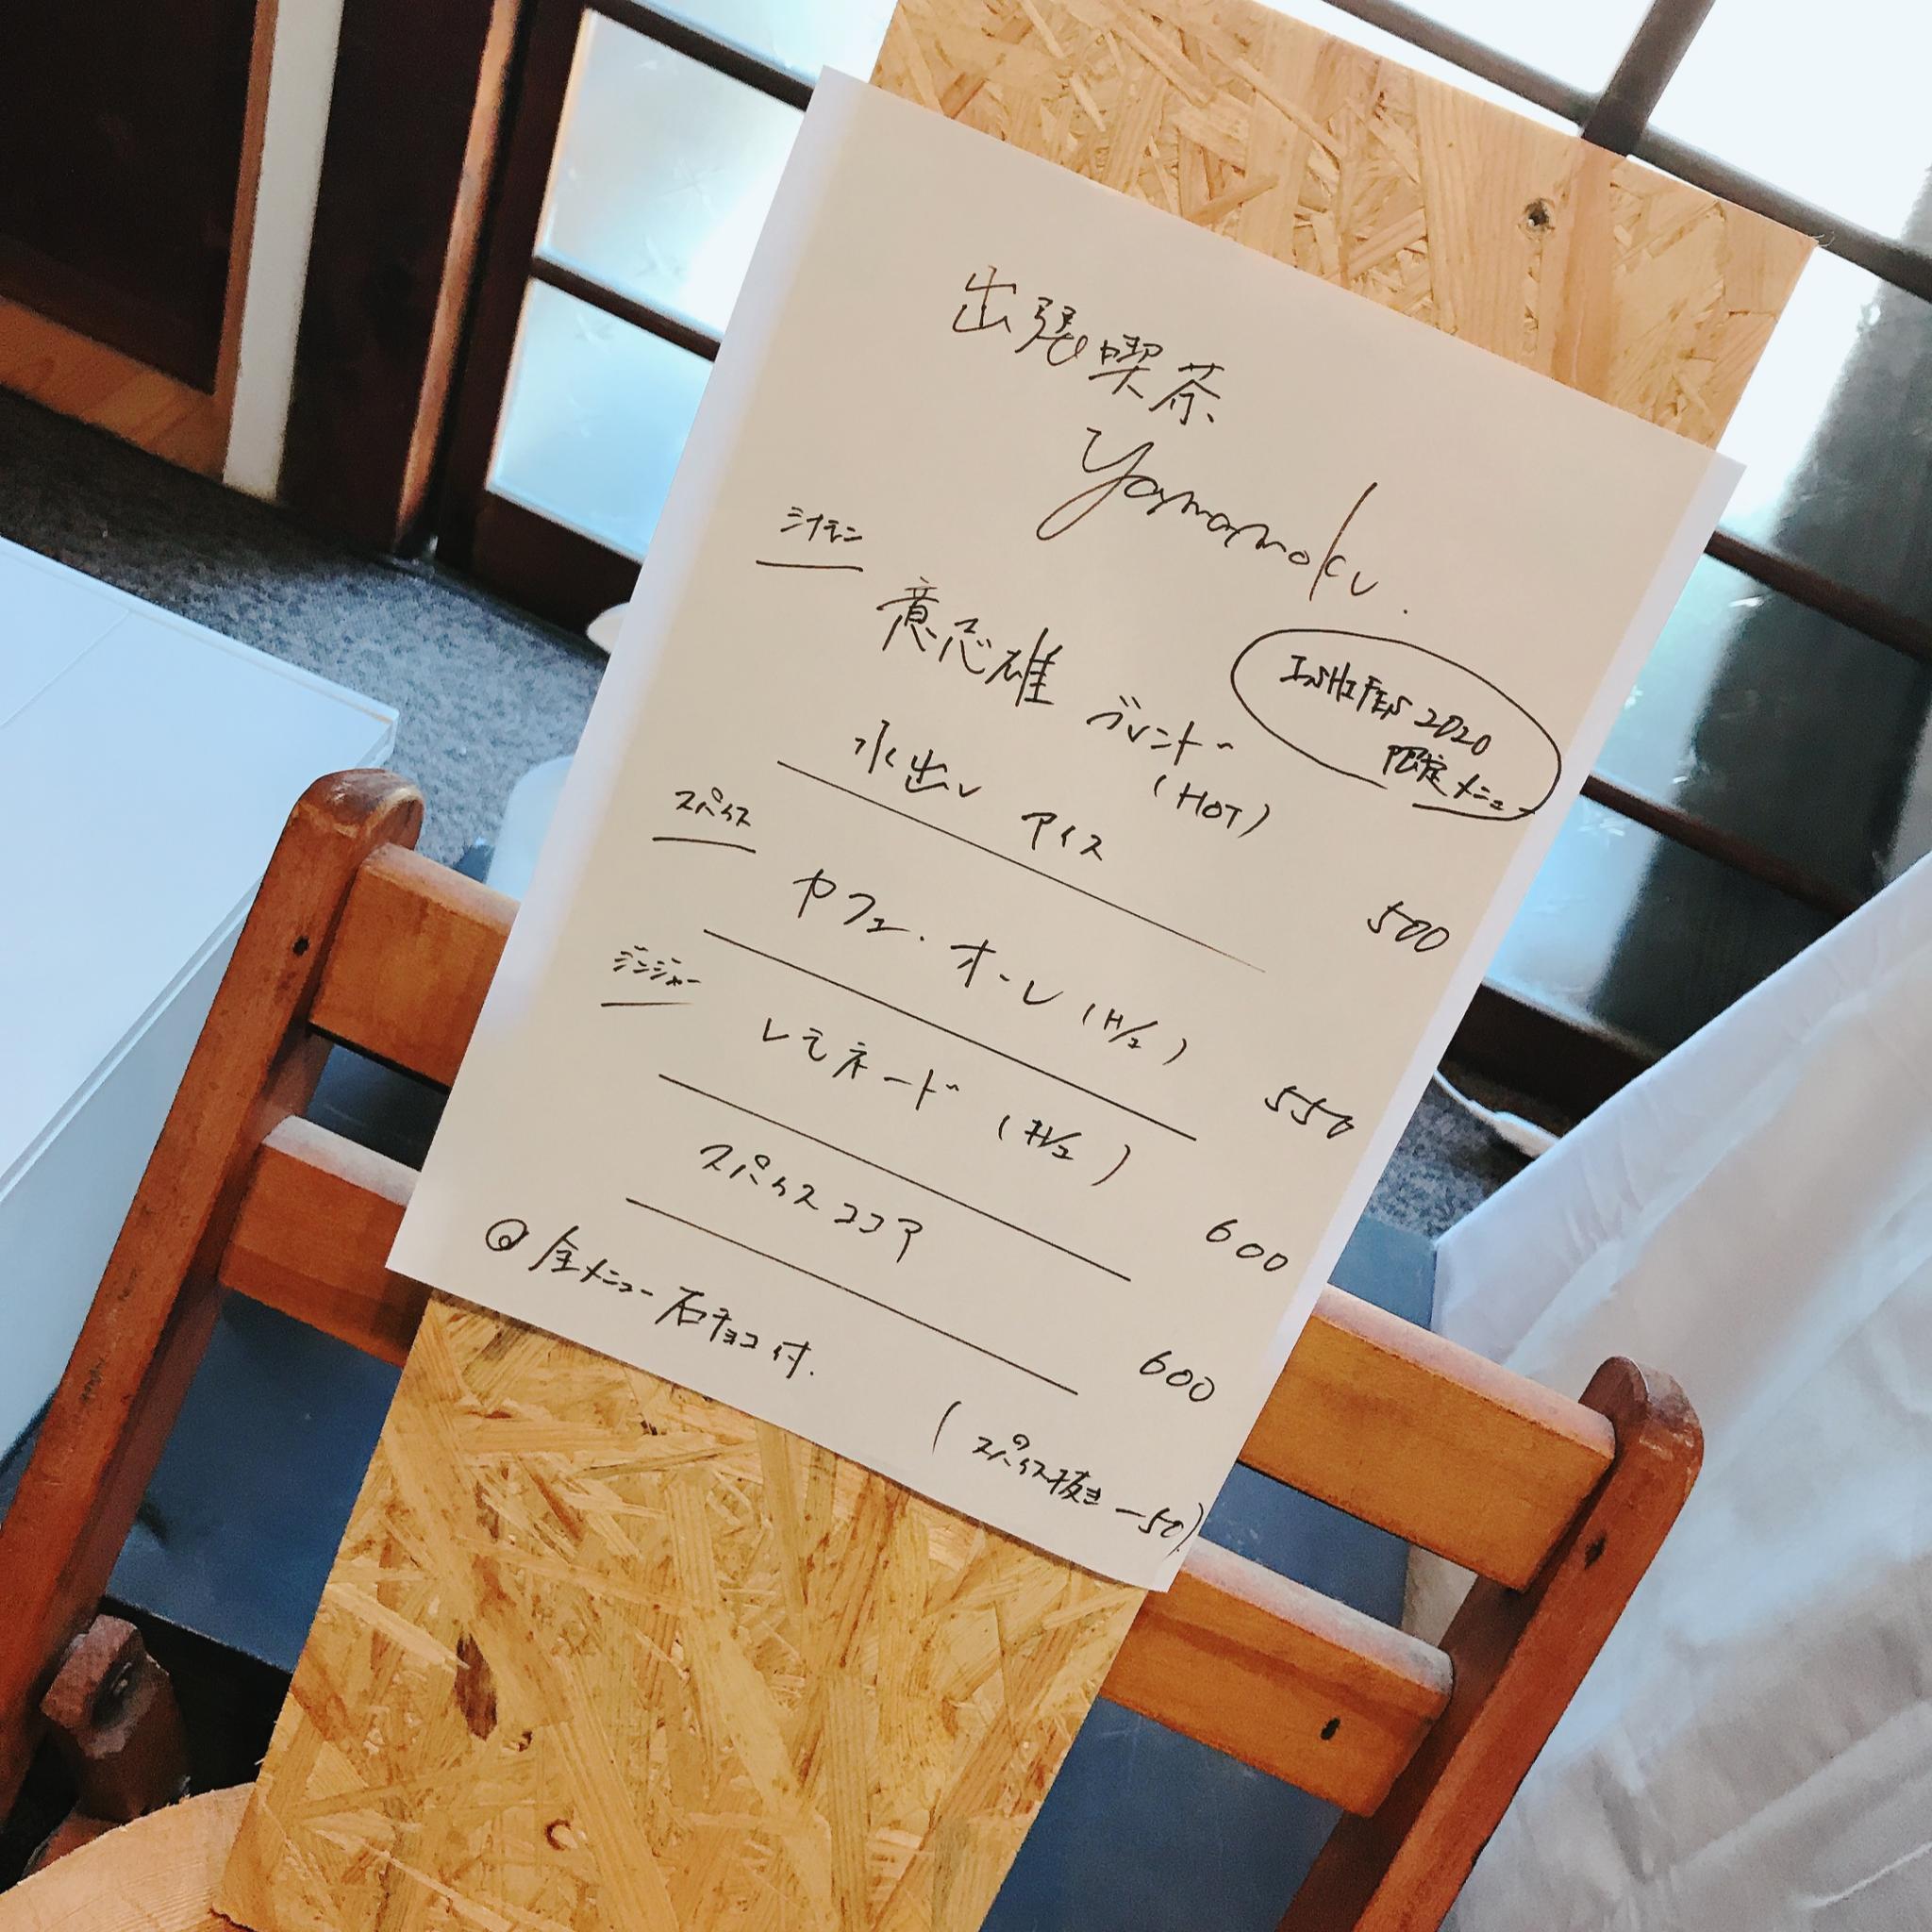 出張喫茶
Yamamoku.
シナモン
意心雄 ブレンド
(HOT)
INSHI FES 2020
限定メニュー
水出し アイス
500
スパイス
カフェ・オーレ (H/I)
550
ジンジャー
レモネード (H/I)
600
スパイスココア
600
@ 全メニュー石チョコ付.
(スパイス抜き -50)